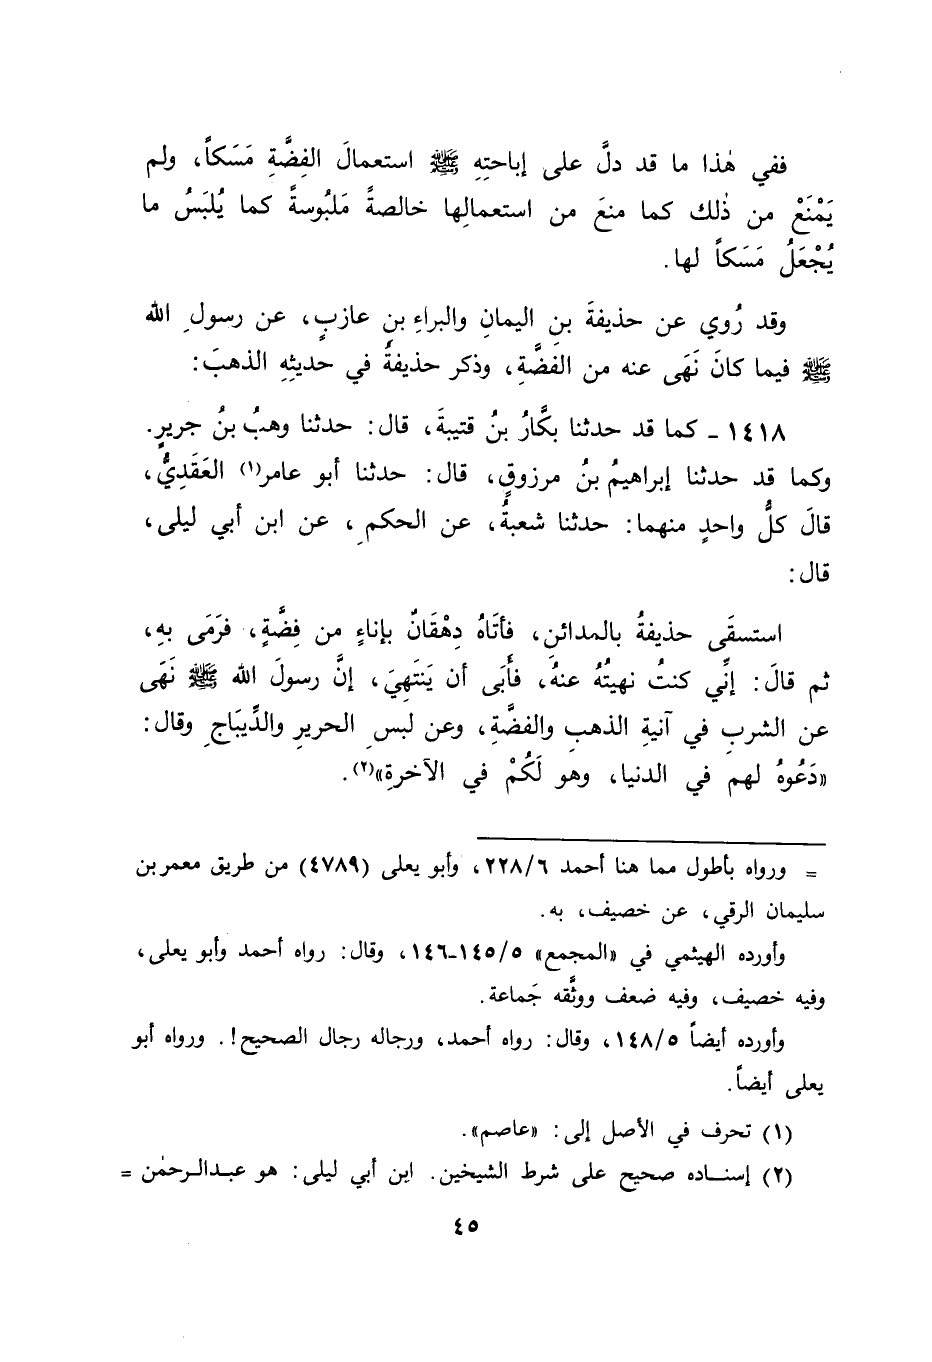 ففي هٰذا ما قد دلَّ على إباحتِهِ ﷺ استعمالَ الفِضَّةِ مَسَكاً، ولم
يَمْنَعْ من ذٰلك كما منعَ من استعمالِها خالصةً مَلبُوسةً كما يُلبَسُ ما
يُجْعَلُ مَسَكاً لها.
وقد رُوي عن حذيفةَ بنِ اليمانِ والبراءِ بنِ عازبٍ، عن رسولِ الله
ﷺ فيما كانَ نَهَى عنه من الفضَّةِ، وذكر حذيفةُ في حديثِهِ الذهبَ:
١٤١٨ - كما قد حدثنا بكَّارُ بنُ قتيبةَ، قال: حدثنا وهبُ بنُ جريرٍ.
وكما قد حدثنا إبراهيمُ بنُ مرزوقٍ، قال: حدثنا أبو عامر(١) العَقَديُّ،
قالَ كلُّ واحدٍ منهما: حدثنا شعبةُ، عن الحكمِ، عن ابن أبي ليلى،
قال:
استسقَى حذيفةُ بالمدائنِ، فأتَاهُ دِهْقَانٌ بإناءٍ من فِضَّةٍ، فرَمَى بهِ،
ثم قالَ: إنِّي كنتُ نهيتُهُ عنهُ، فأَبَى أن يَنتَهِيَ، إنَّ رسولَ الله ﷺ نَهَى
عن الشربِ في آنيةِ الذهبِ والفضَّةِ، وعن لبسِ الحريرِ والدِّيبَاجِ وقال:
«دَعُوهُ لهم في الدنيا، وهو لَكُمْ في الآخرةِ»(٢).
= ورواه بأطول مما هنا أحمد ٢٢٨/٦، وأبو يعلى (٤٧٨٩) من طريق معمر بن
سليمان الرقي، عن خصيف، به.
وأورده الهيثمي في «المجمع» ١٤٥/٥-١٤٦، وقال: رواه أحمد وأبو يعلى،
وفيه خصيف، وفيه ضعف ووثَّقه جَماعة.
وأورده أيضاً ١٤٨/٥، وقال: رواه أحمد، ورجاله رجال الصحيح!. ورواه أبو
يعلى أيضاً.
(١) تحرف في الأصل إلى: «عاصم».
(٢) إسناده صحيح على شرط الشيخين. ابن أبي ليلى: هو عبدالرحمٰن =
٤٥